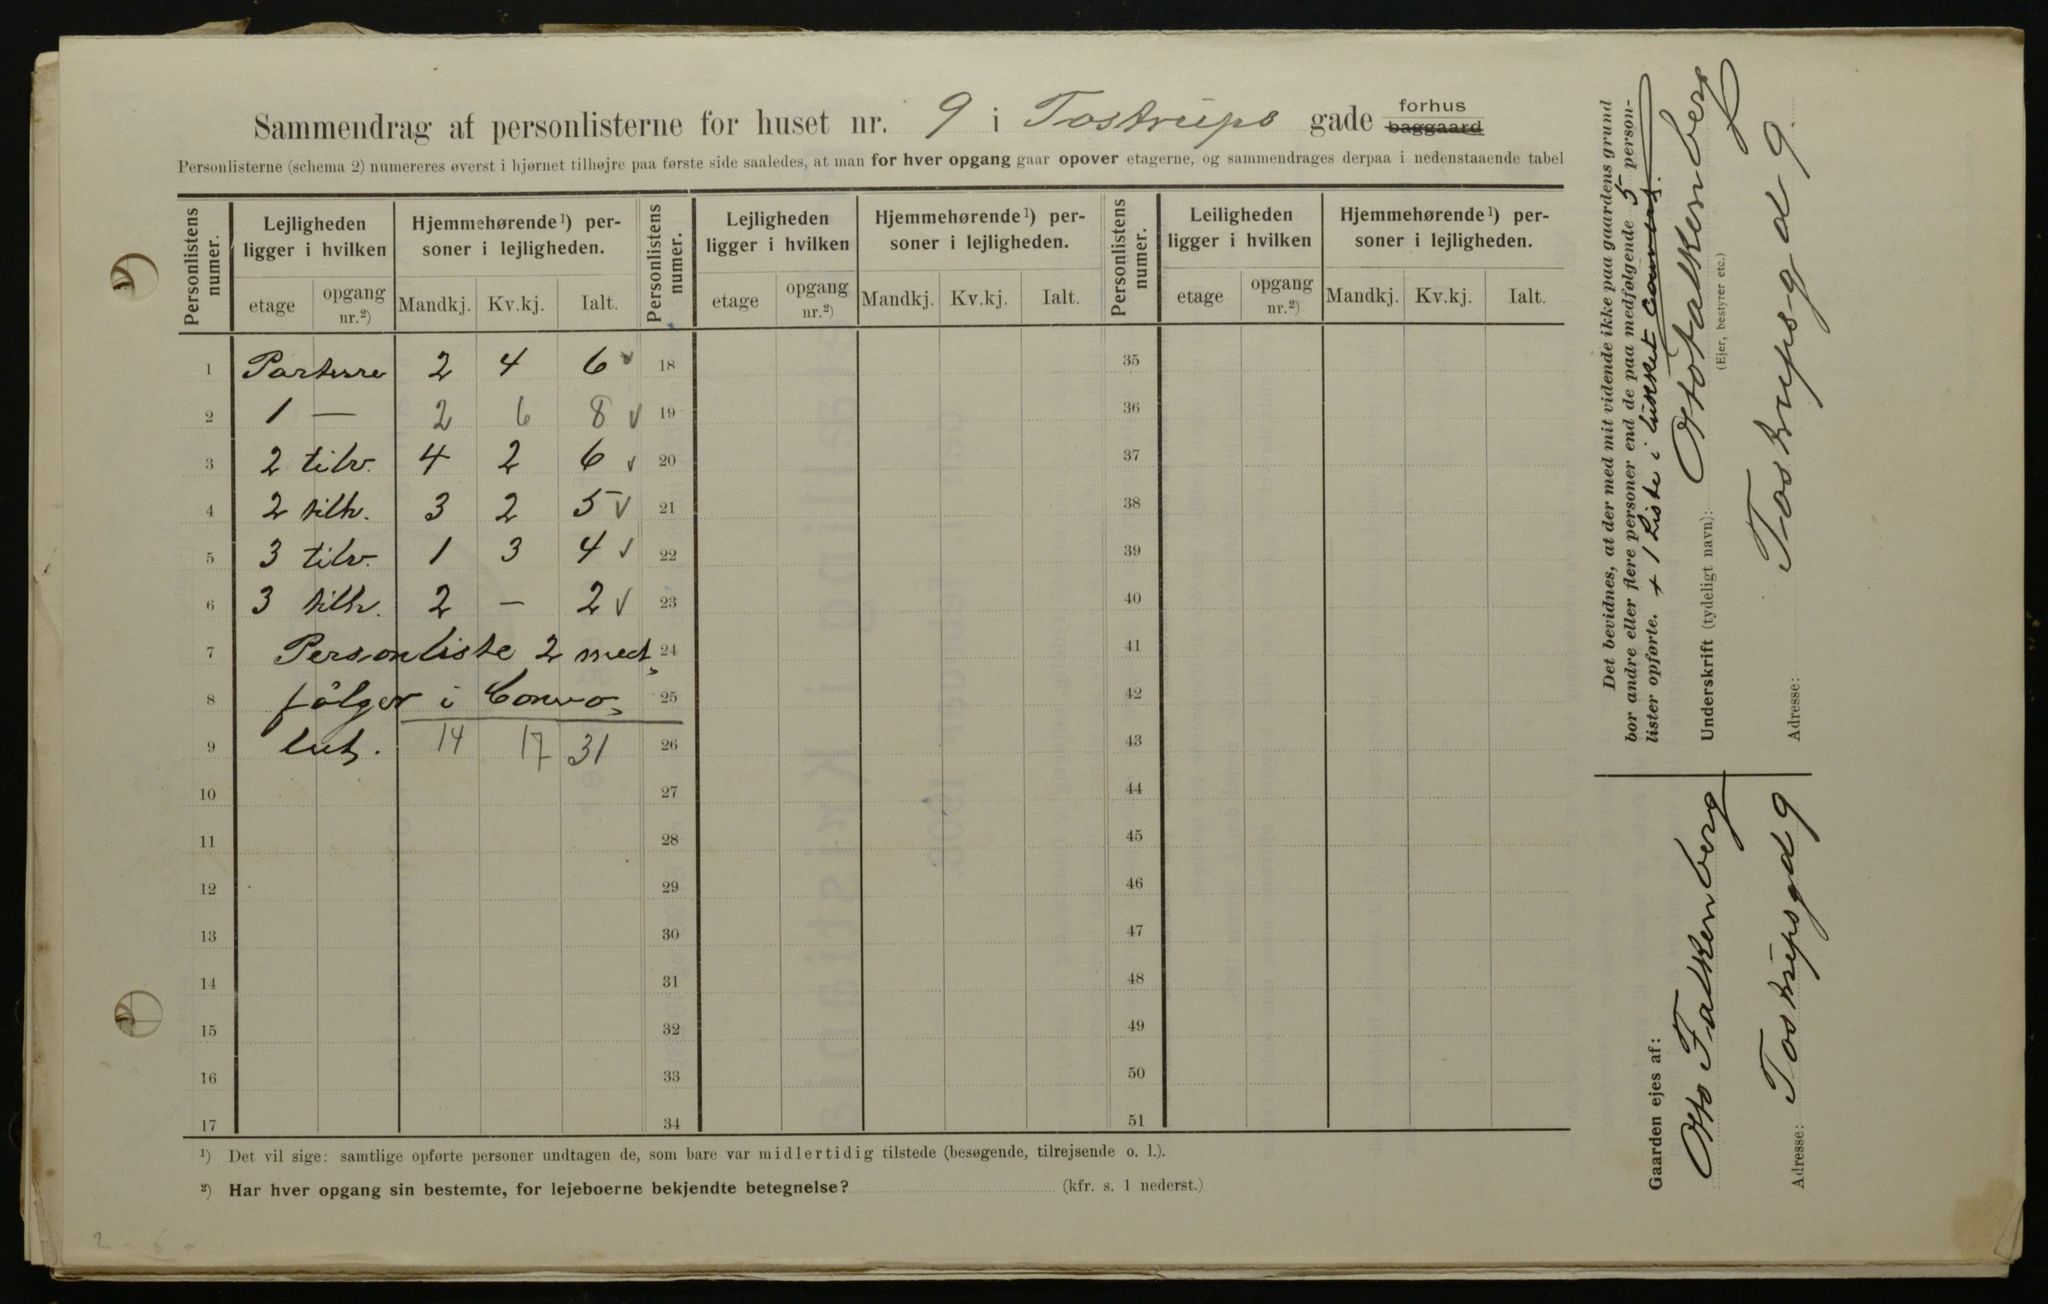 Sammendrag af personlisterne for huset nr. 9 i Tostrups gade forhus baggaard
Personlisterne (schema 2) numereres øverst i hjørnet tilhøjre paa første side saaledes, at man for hver opgang gaar opover etagerne, og sammendrages derpaa i nedenstaaende tabel
Personlistens numer. Lejligheden ligger i hvilken Hjemmehørende¹) personer i lejligheden. Personlistens numer. Lejligheden ligger i hvilken Hjemmehørende¹) personer i lejligheden. Personlistens numer. Leiligheden ligger i hvilken Hjemmehørende¹) personer i lejligheden.
etage opgang nr.²) Mandkj. Kv.kj. Ialt. etage opgang nr.²) Mandkj. Kv.kj. Ialt. etage opgang nr.²) Mandkj. Kv.kj. Ialt.
1 Parterre 2 4 6 18 35
2 1 — 2 6 8 19 36
3 2 tilv. 4 2 6 20 37
4 2 tilh. 3 2 5 21 38
5 3 tilv. 1 3 4 22 39
6 3 tilh. 2 — 2 23 40
7 Personliste 2 med- 24 41
8 følger i Convo- 25 42
9 lut. 14 17 31 26 43
10 27 44
11 28 45
12 29 46
13 30 47
14 31 48
15 32 49
16 33 50
17 34 51
¹) Det vil sige: samtlige opførte personer undtagen de, som bare var midlertidig tilstede (besøgende, tilrejsende o. l.).
²) Har hver opgang sin bestemte, for lejeboerne bekjendte betegnelse? (kfr. s. 1 nederst.)
Det bevidnes, at der med mit vidende ikke paa gaardens grund
bor andre eller flere personer end de paa medfølgende 5 person-
lister opførte. + 1 Liste i lukket Couvert.
Underskrift (tydeligt navn): Otto Falkenberg
(Ejer, bestyrer etc.)
Adresse: Tostrupsgd 9.
Gaarden ejes af:
Otto Falkenberg
Adresse: Tostrupsgd 9